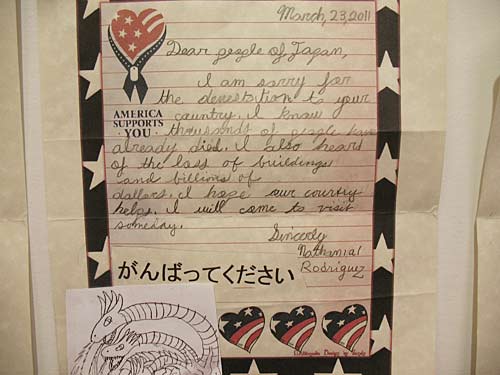 March, 23, 2011
Dear people of Japan,
I am sorry for
the devestition to your
country. I know
AMERICA
SUPPORTS
YOU
thousands of people have
already died. I also hears
of the loss of buildings
and billions of
dollars. I hope our country
helps. I will come to visit
someday.
Sincerly
Nathanial
Rodriguez
がんばってください